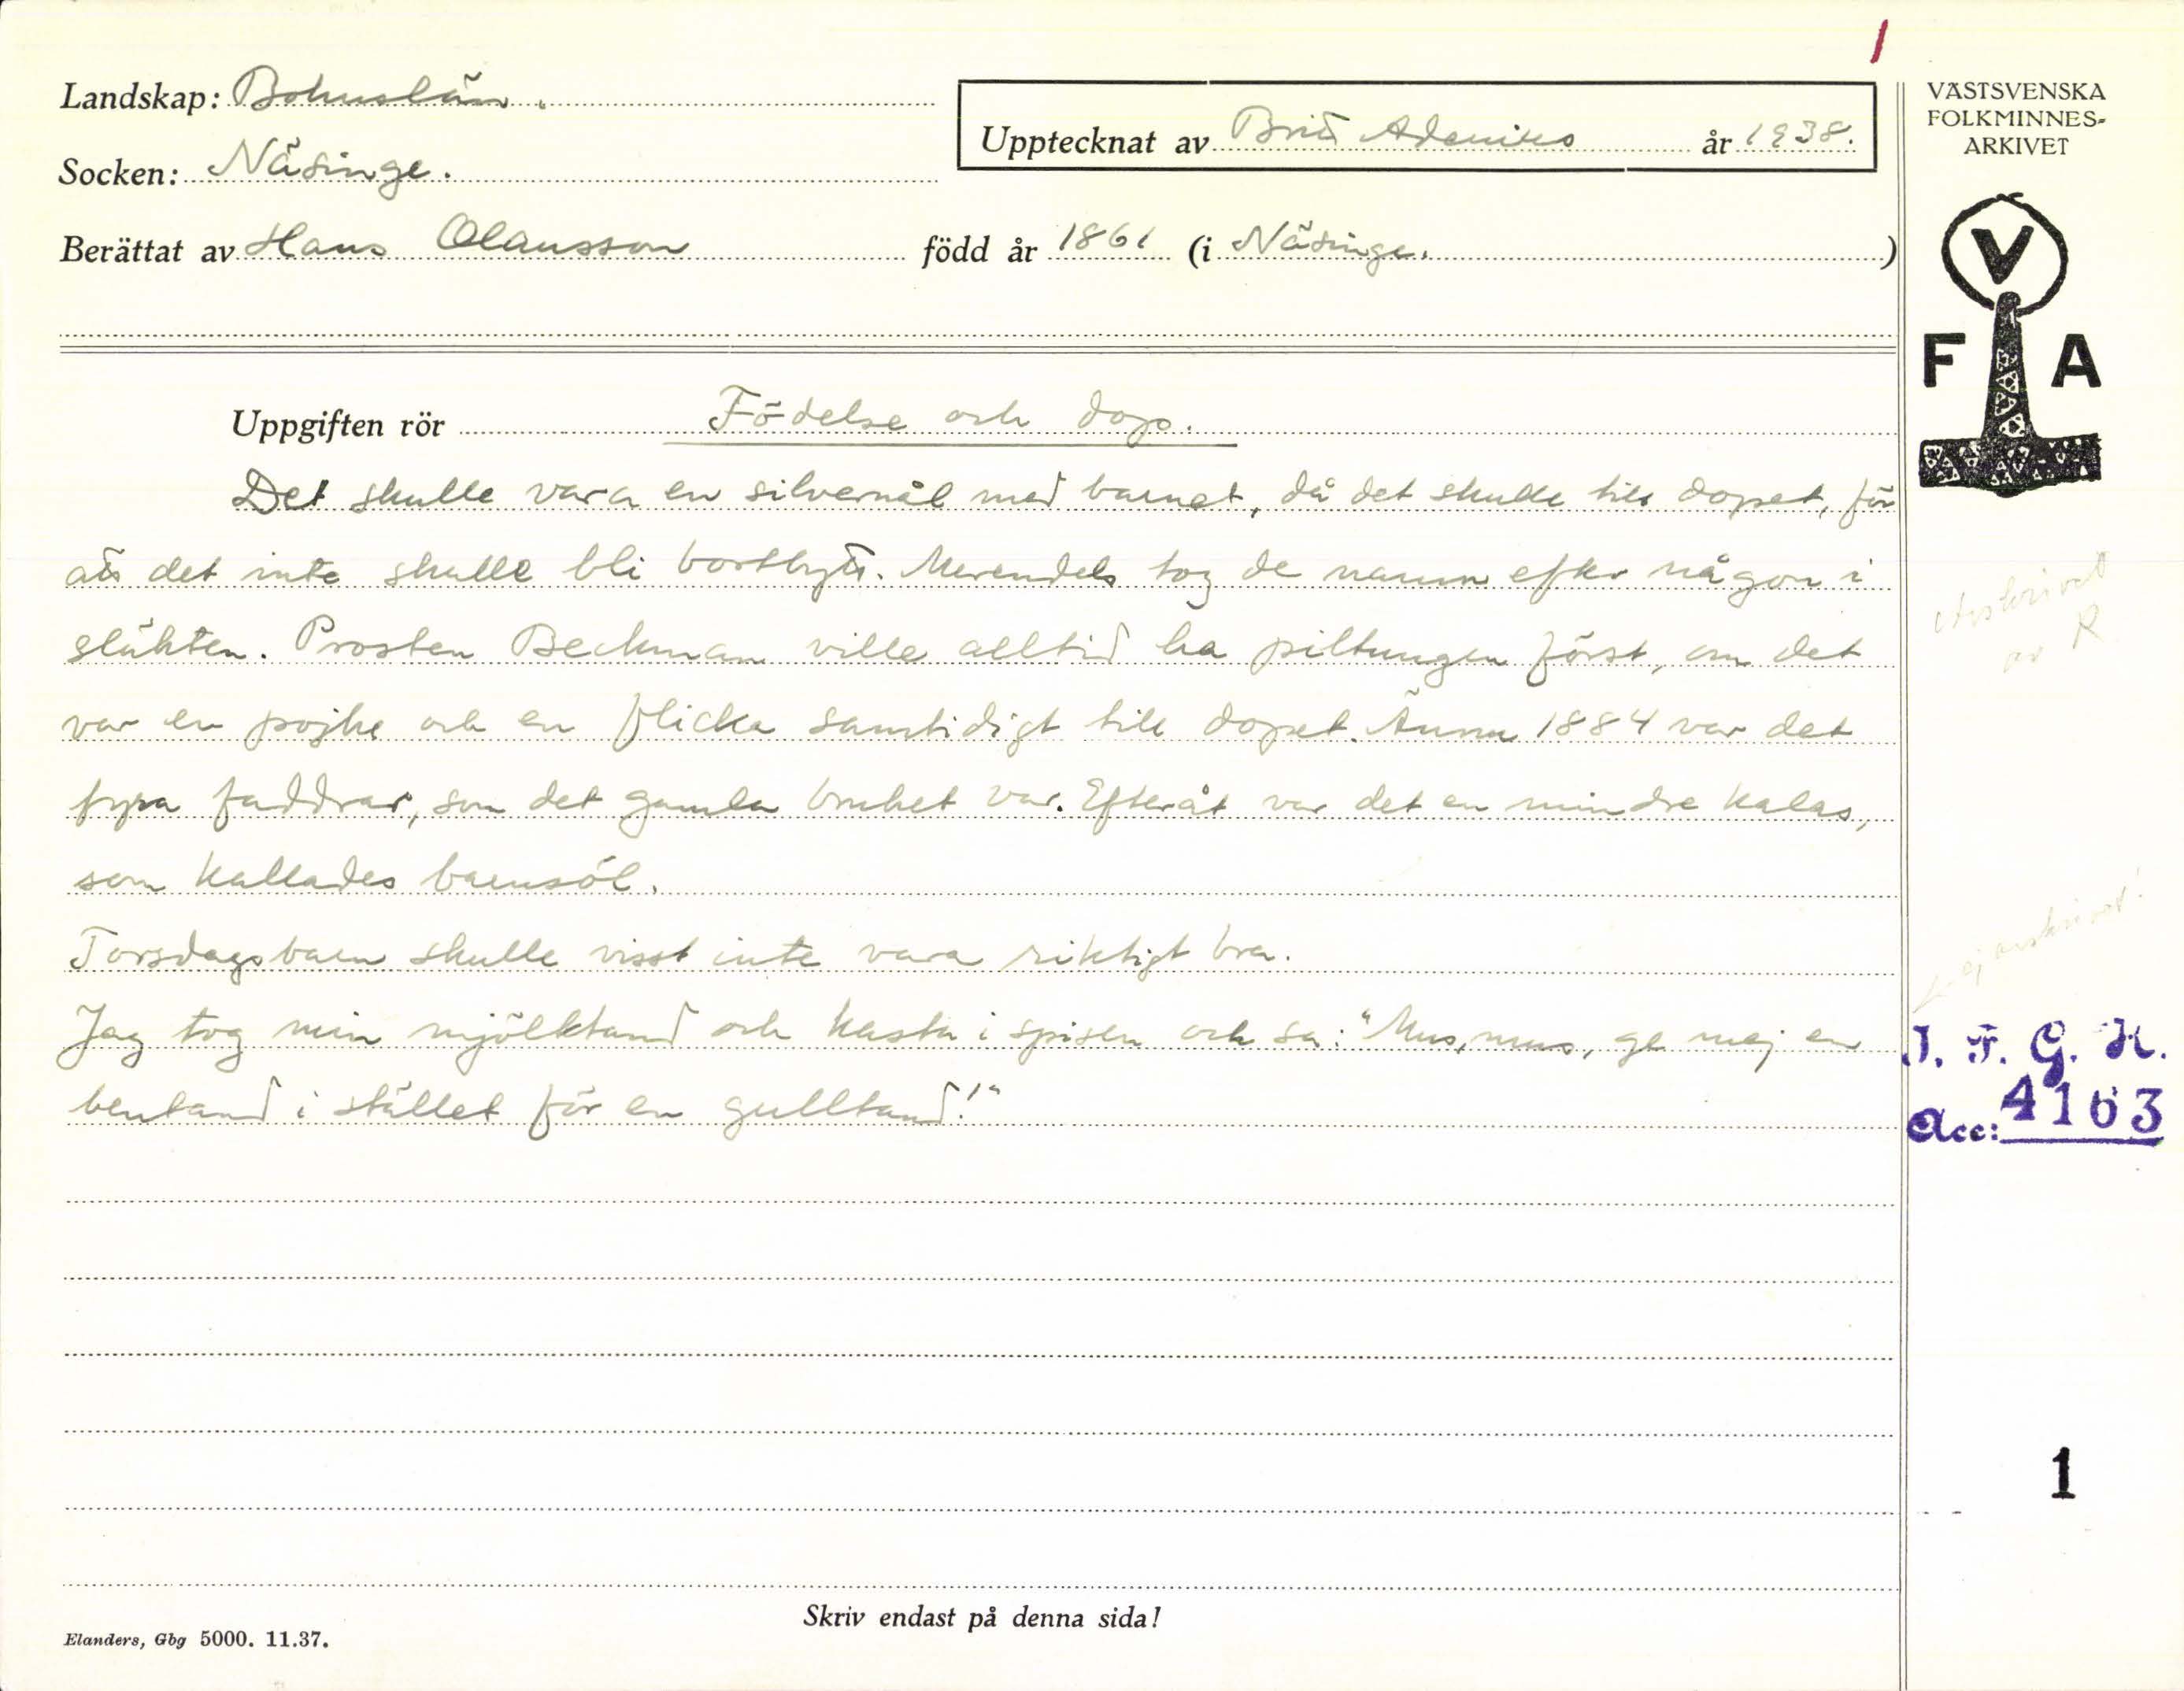 1
Landskap: Bohuslän.
Upptecknat av Brit Adenius år 1938.
Socken: Näsinge.
Berättat av Hans Olausson född år 1861 (i Näsinge.)
VÄSTSVENSKA
FOLKMINNES-
ARKIVET
V
F A
Uppgiften rör Födelse och dop.
Det skulle vara en silvernål med barnet, då det skulle till dopet, för
att det inte skulle bli bortbytt. Merendels tog de namn efter någon i
släkten. Prosten Beckman ville alltid ha piltungen först, om det
var en pojke och en flicka samtidigt till dopet. Ännu 1884 var det
fyra faddrar, som det gamla bruket var. Efteråt var det en mindre kalas,
som kallades barnsöl.
Torsdagsbarn skulle visst inte vara riktigt bra.
Jag tog min mjölktand och kasta i spisen och sa: "Mus, mus, ge mej en
bentand i stället för en gulltand!"
Avskrivet
av R
ej avskrivet!
I. F. G. H.
Acc: 4163
1
Skriv endast på denna sida!
Elanders, Gbg 5000. 11.37.